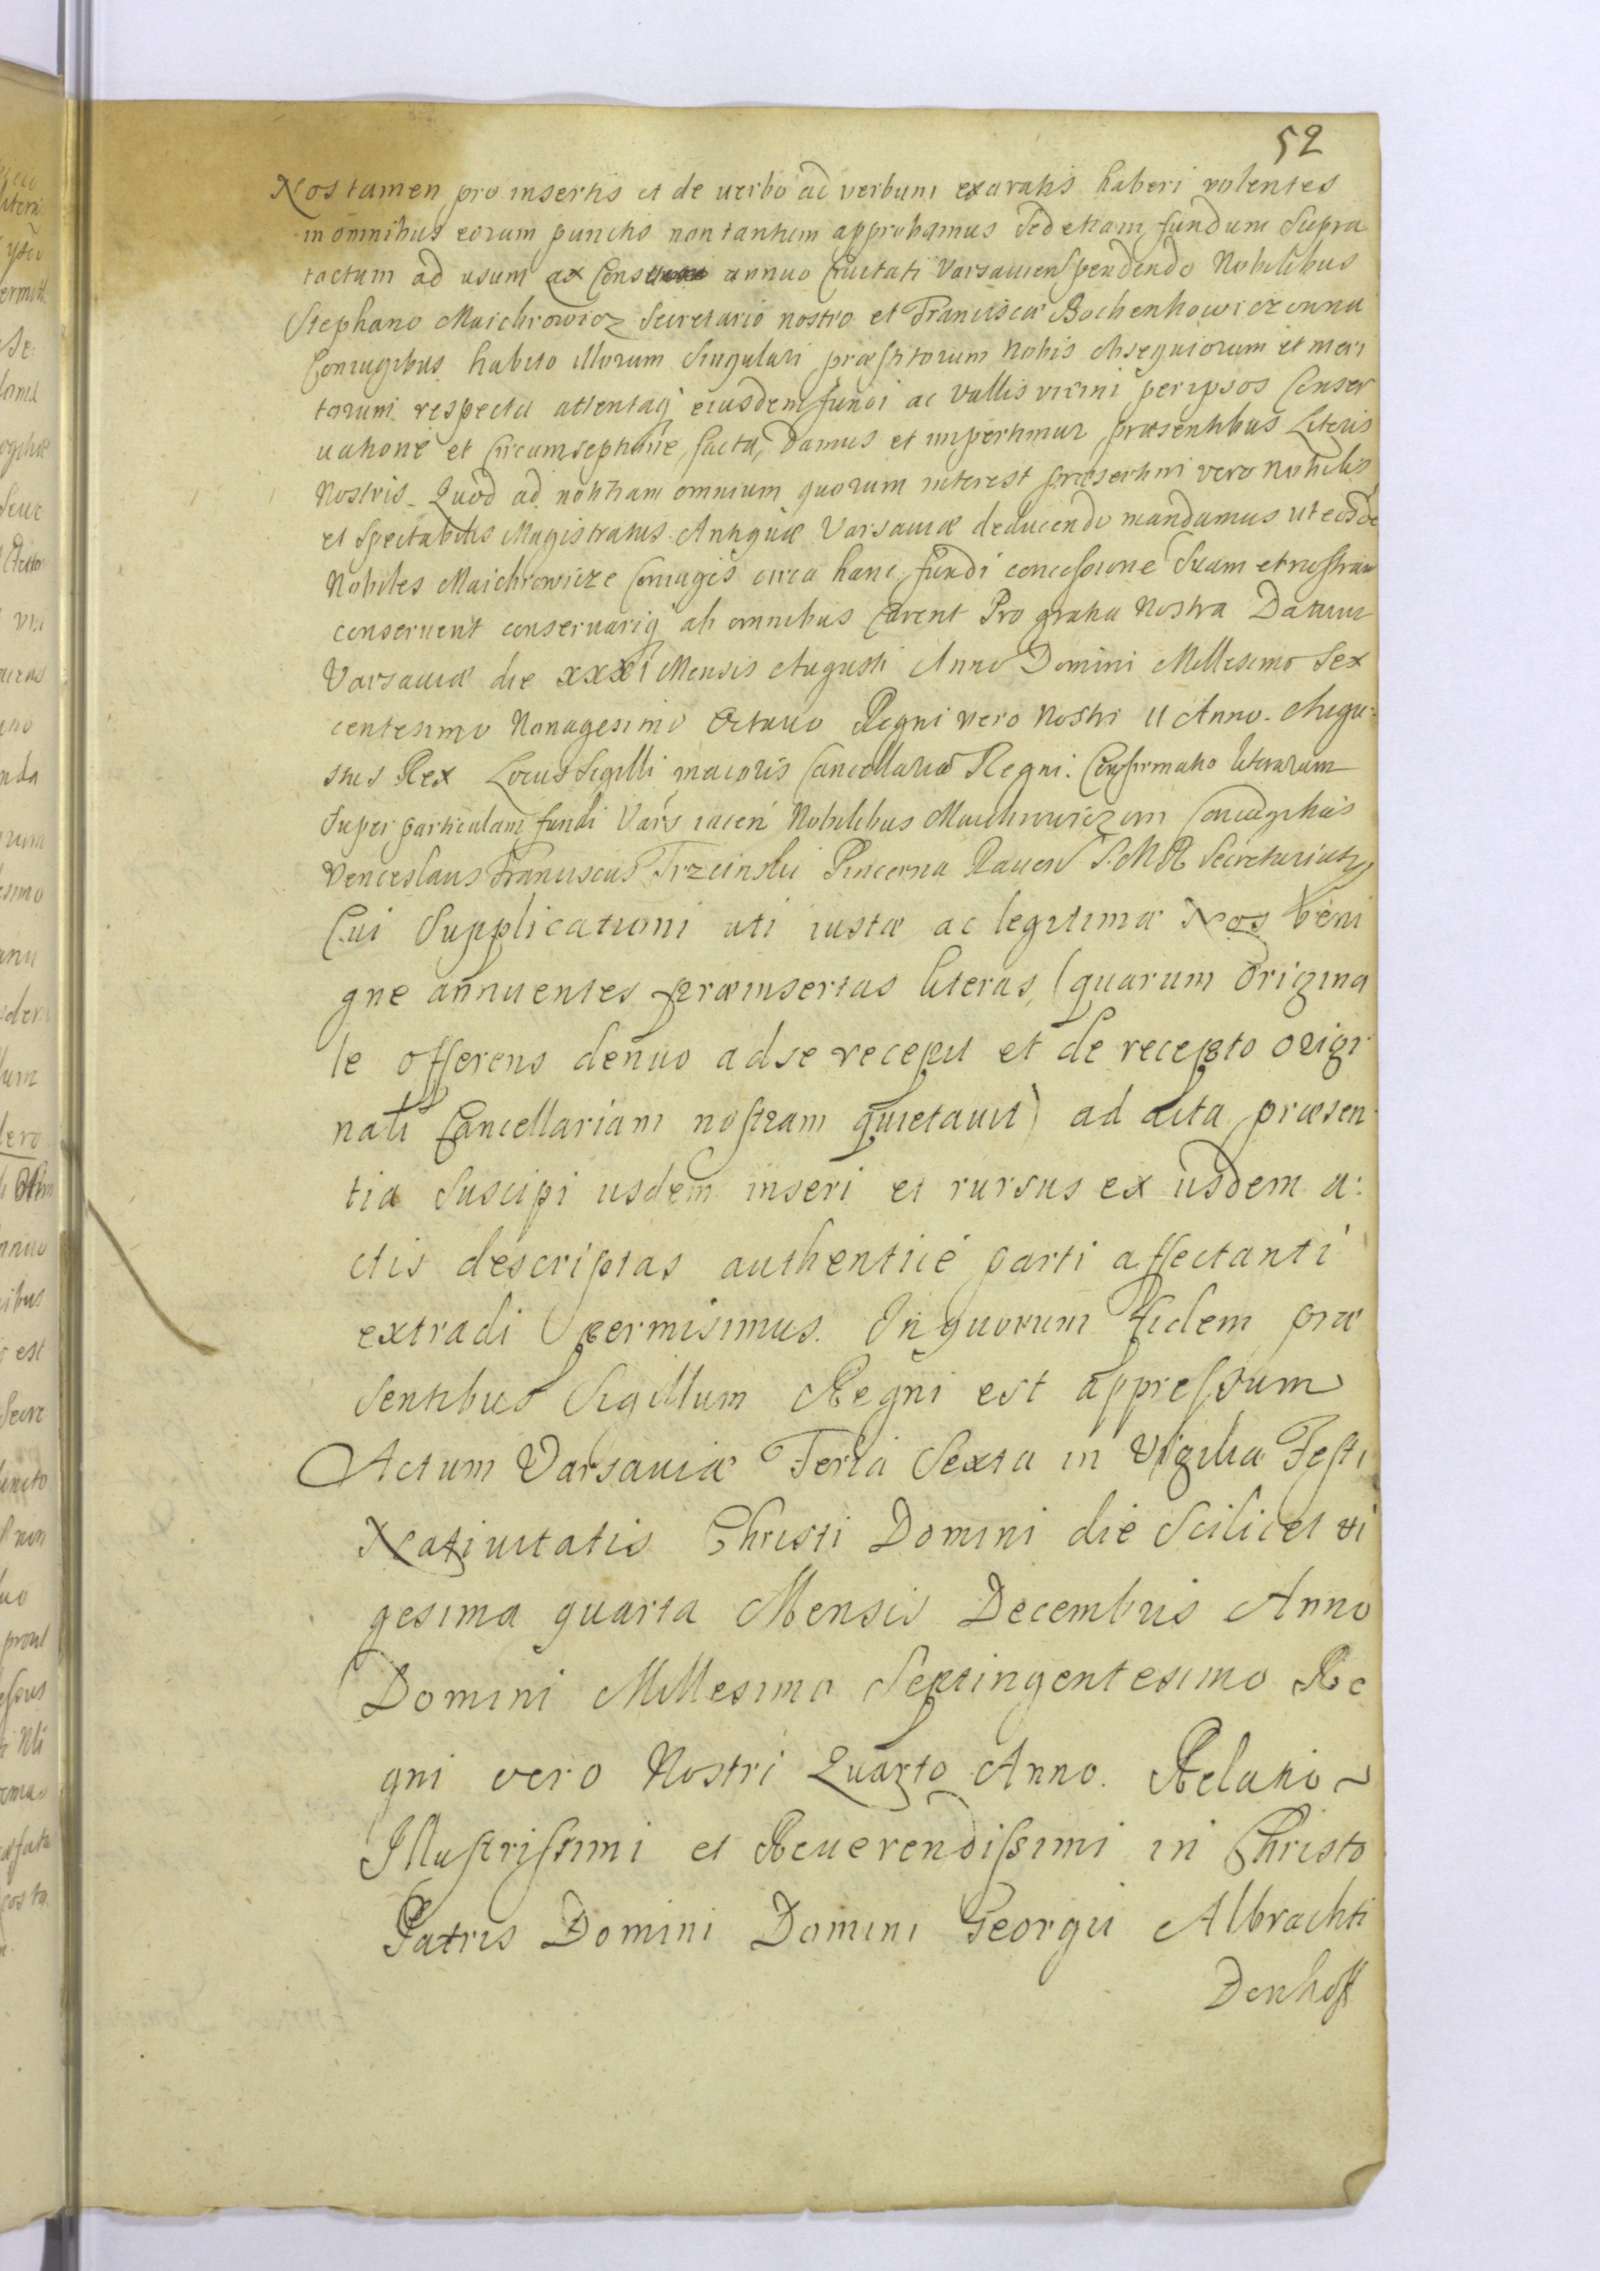 52
Nos tamen pro insertis et de verbo ad verbum exaratis haberi volentes
in omnibus eorum punctis non tantum approbamus Sed etiam fundum Supra
tactum ad usum ac Censu annuo Ciuitati Varsauien Spendendo Nobilibus
Stephano Maichrowicz Secretario nostro et Franciscæ Bochenkowiczowna
Coniugibus habito illorum Singulari præstitorum Nobis obsequiorum et meri
torum respectu attentaq eiusdem fundi ac Vallis vicini per ipsos Conser
uatione et Circumseptione facta, Damus et impertimur præsentibus Literis
Nostris. Quod ad notitiam omnium quorum interest præsertim vero Nobilis
et Spectabilis Magistratus Antiquæ Varsauiæ deducendo mandamus ut eosde
Nobiles Maichrowicze Coniuges circa hanc fundi concessione Suam et nostram
conseruent conseruariq ab omnibus Curent Pro gratia Nostra Datum
Varsauiæ die XXXI Mensis Augusti Anno Domini Millesimo Sex
centesimo Nonagesimo Octauo Regni vero Nostri II Anno. Augu:
stus Rex Locus Sigilli maioris Cancellariæ Regni. Confirmatio literarum
Super particulam fundi Vars iacen Nobilibus Maichrowiczom Coniugibus
Venceslaus Franciscus Trzcinski Pincerna Rauen S. M R Secretarius
Cui Supplicationi uti iustæ ac legitimæ Nos beni
gne annuentes præinsertas literas, (quarum Origina
le offerens denuo ad se recepit et de recepto origi
nali Cancellariam nostram quietauit) ad acta præsen
tia Suscipi iisdem inseri et rursus ex iisdem a:
ctis descriptas authenticè parti affectanti
extradi permisimus. In quorum fidem præ
sentibus Sigillum Regni est appressum
Actum Varsauiæ Feria Sexta in Vigilia Festi
Natiuitatis Christi Domini die Scilicet vi
gesima quarta Mensis Decembris Anno
Domini Millesimo Septingentesimo Re
gni vero Nostri Quarto Anno. Relatio
Illustrissimi et Reuerendissimi in Christo
Patris Domini Domini Georgii Albrachti
Denhoff